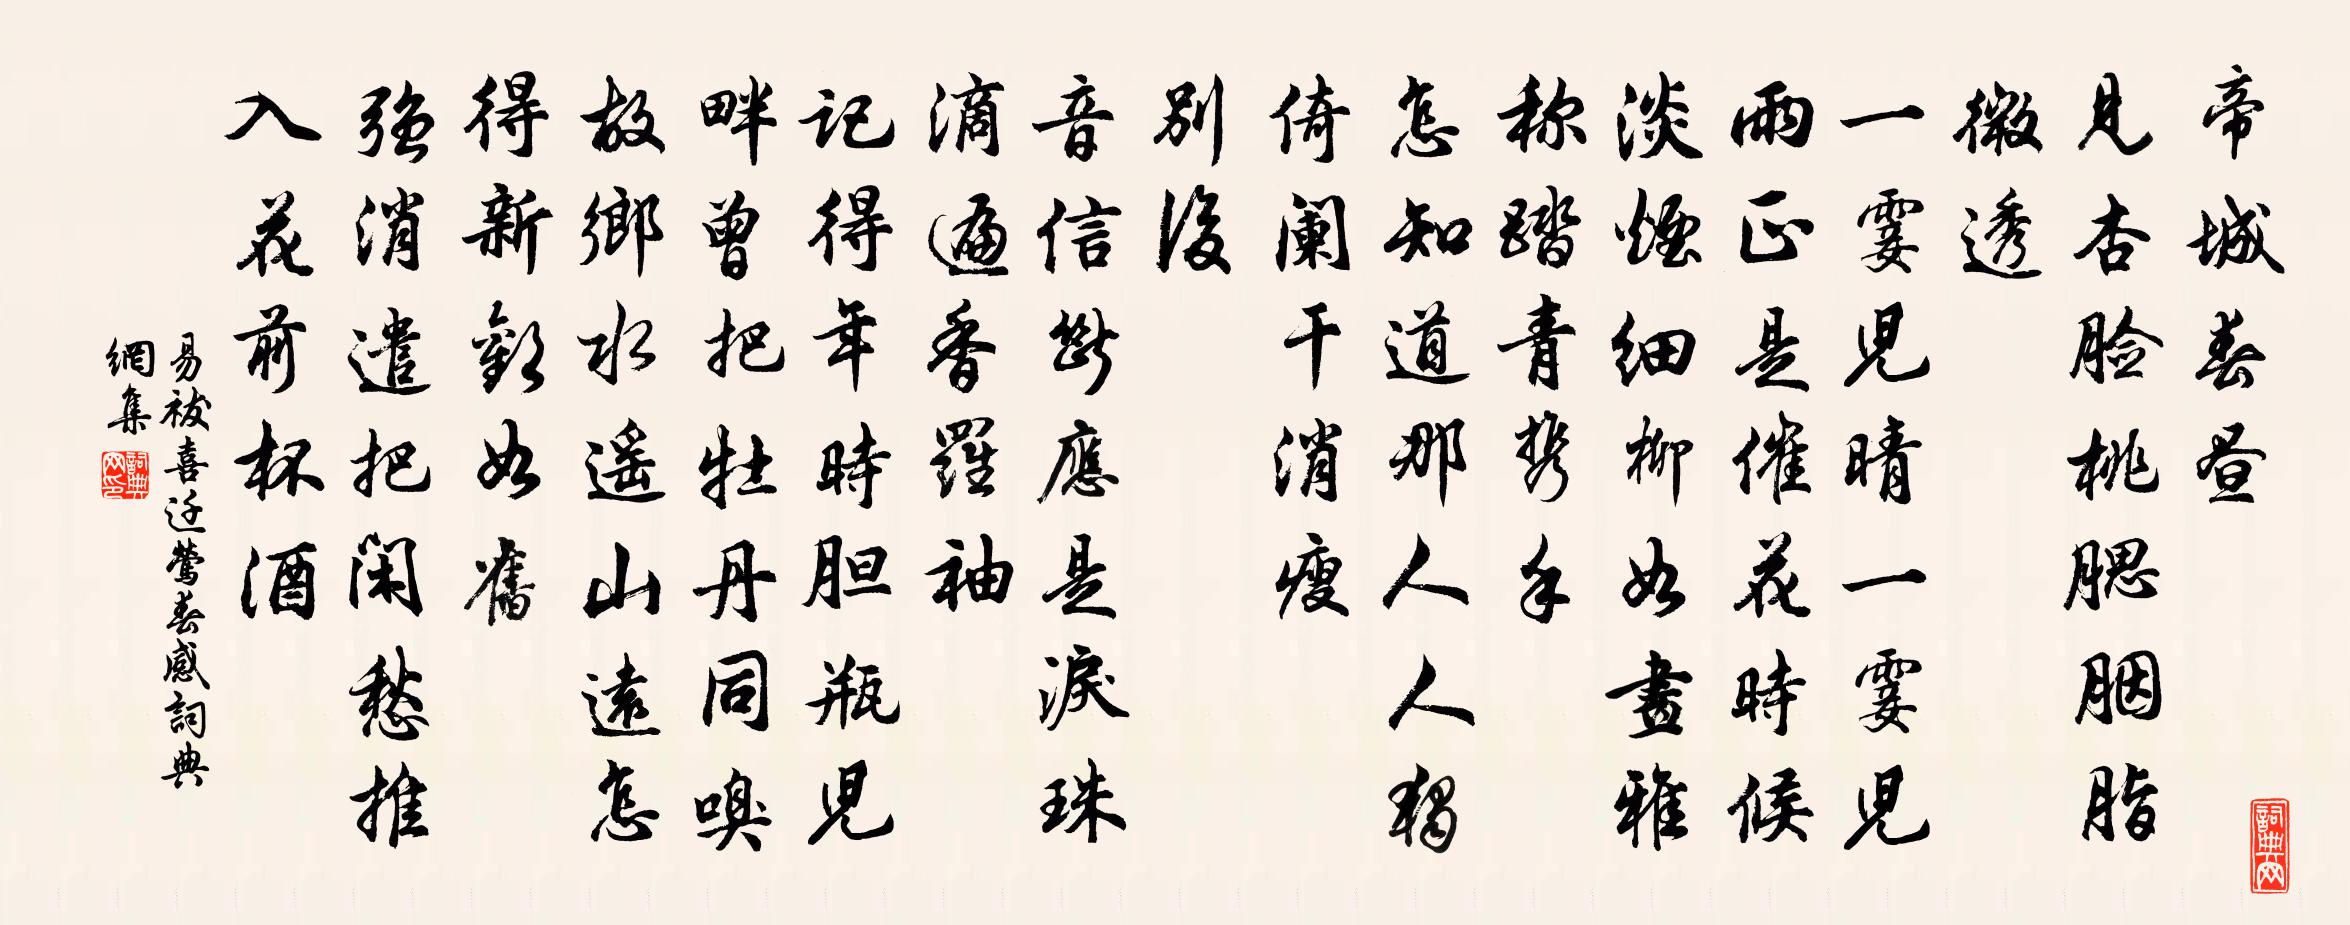 帝城春昼
見杏脸桃腮胭脂
微透
一霎児晴一霎児
雨正是催花時候
淡煙細柳如畫雅
称踏青携手
怎知道那人人獨
倚闌干消瘦
別後
音信斷應是淚珠
滴遍香羅袖
記得年時胆瓶児
畔曾把牡丹同嗅
故鄉水遥山遠怎
得新歡如舊
強消遣把閑愁推
入花前杯酒
易祓喜迁鶯春感詞典
網集
詞典网印
詞典网